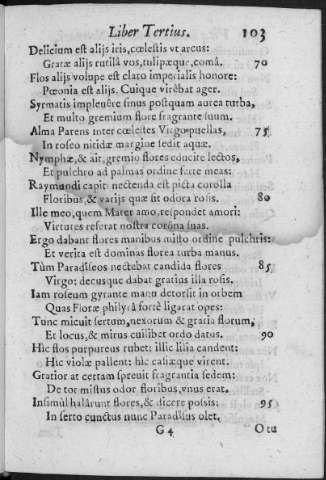 Liber Tertius. 103
Delicium est alijs iris, cœlestis vt arcus:
Gratæ alijs rutilâ vos, tulipæque, comâ. 70
Flos alijs volupe est claro imperialis honore:
Pœonia est alijs. Cuique virêbat ager.
Syrmatis implevêre sinus postquam aurea turba,
Et multo gremium flore fragrante suum.
Alma Parens inter cœlestes Virgo puellas, 75
In roseo nitidæ margine sedit aquæ.
Nymphæ, & ait, gremio flores educite lectos,
Et pulchro ad palmas ordine ferte meas:
Raymundi capiti nectenda est picta corolla
Floribus, & varijs quæ sit odora rosis. 80
Ille meo, quem Mater amo, respondet amori:
Virtutes referat nostra corôna suas.
Ergo dabant flores manibus misto ordine pulchris:
Et verita est dominas florea turba manus.
Tùm Paradîseos nectebat candida flores 85
Virgo: decusque dabat gratius illa rosis.
Iam roseum gyrante manu detorsit in orbem
Quas Floræ phylyrâ fortè ligarat opes:
Tunc micuit sertum, nexorum & gratia florum,
Et locus, & mirus cuilibet ordo datus. 90
Hîc flos purpureus rubet: illîc lilia candent:
Hîc violæ pallent: hîc casiæque virent.
Gratior at certam spreuit fragrantia sedem:
De tot mistus odor floribus, vnus erat.
Insimùl halârunt flores, & dicere possis: 95
In serto cunctus nunc Paradîsus olet.
G 4 Otu